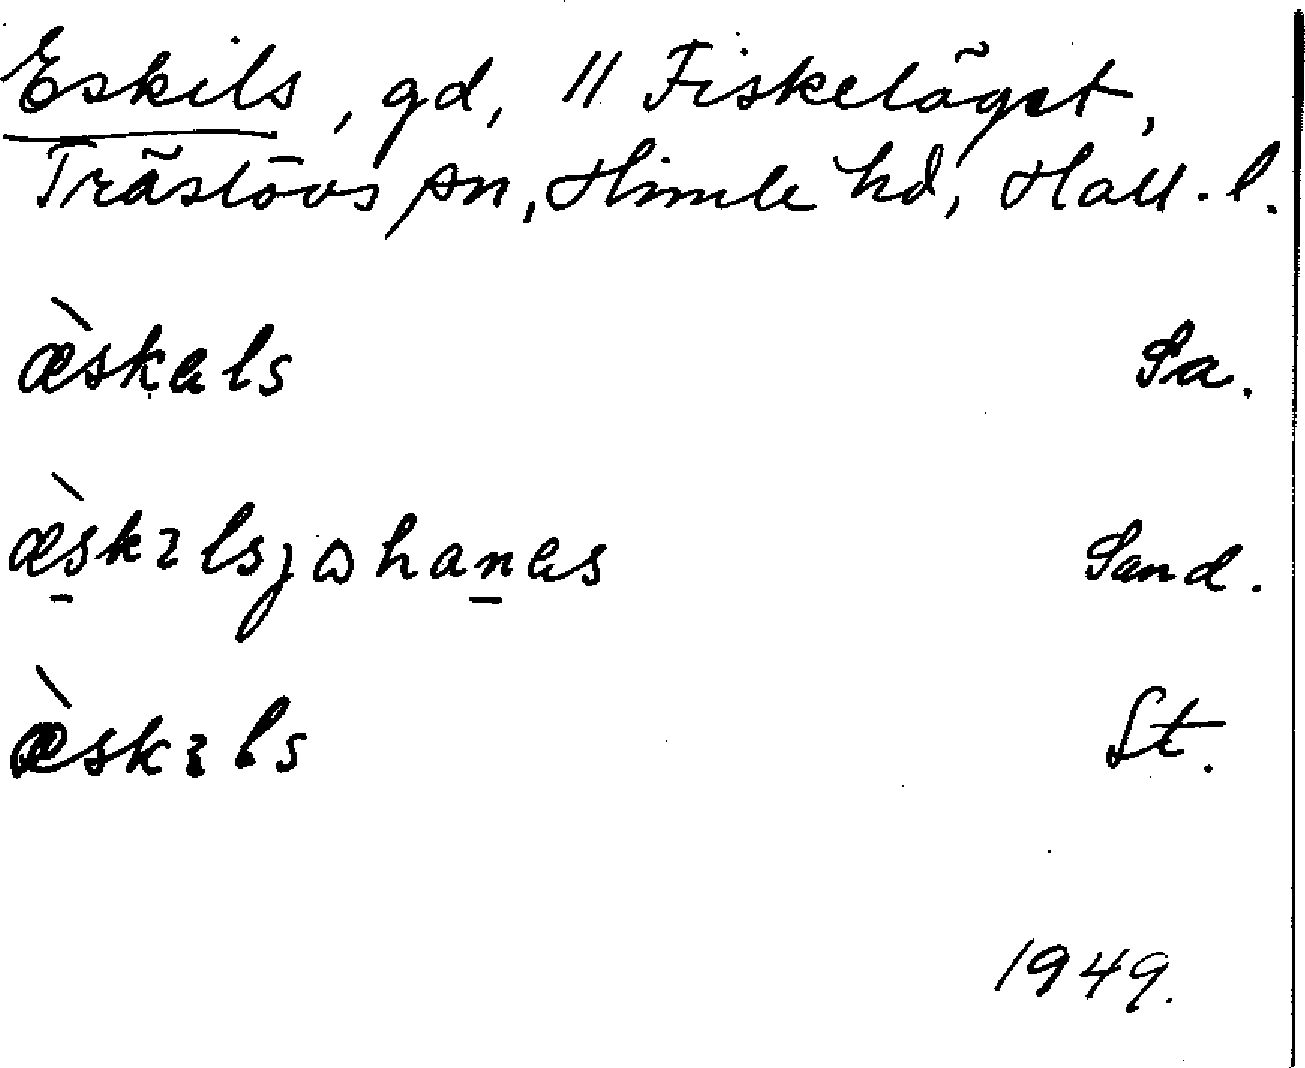 Eskils, gd, 11 Fiskeläget,
Träslövs sn, Himle hd, Hall. l.
æ̀skəls Sa.
æ̀sk̠ɩlsjωhan̠əs Sand.
æ̀skɩls St.
1949.